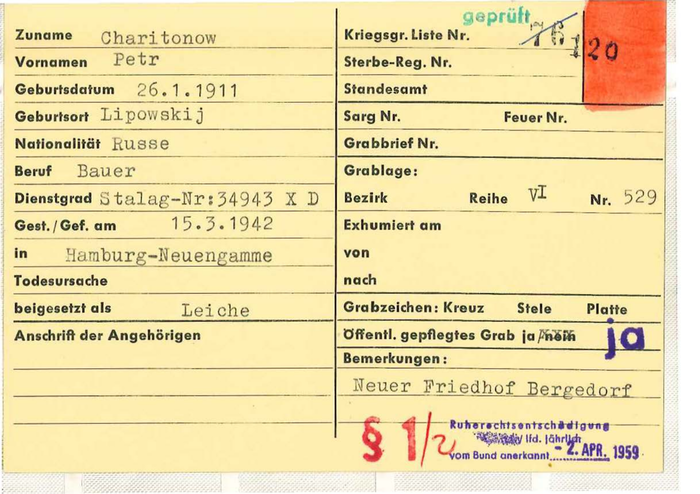 Zuname Charitonow
Vornamen Petr
Geburtsdatum 26.1.1911
Geburtsort Lipowskij
Nationalität Russe
Beruf Bauer
Dienstgrad Stalag-Nr:34943 X D
Gest./Gef. am 15.3.1942
in Hamburg-Neuengamme
Todesursache
beigesetzt als Leiche
Anschrift der Angehörigen
geprüft
Kriegsgr. Liste Nr. 76 120
Sterbe-Reg. Nr.
Standesamt
Sarg Nr. Feuer Nr.
Grabbrief Nr.
Grablage:
Bezirk Reihe VI Nr. 529
Exhumiert am
von
nach
Grabzeichen: Kreuz Stele Platte
Öffentl. gepflegtes Grab ja/nein ja
Bemerkungen:
Neuer Friedhof Bergedorf
§ 1/2
Ruherechtsentschädigung
lfd. jährlich
vom Bund anerkannt - 2. APR. 1959